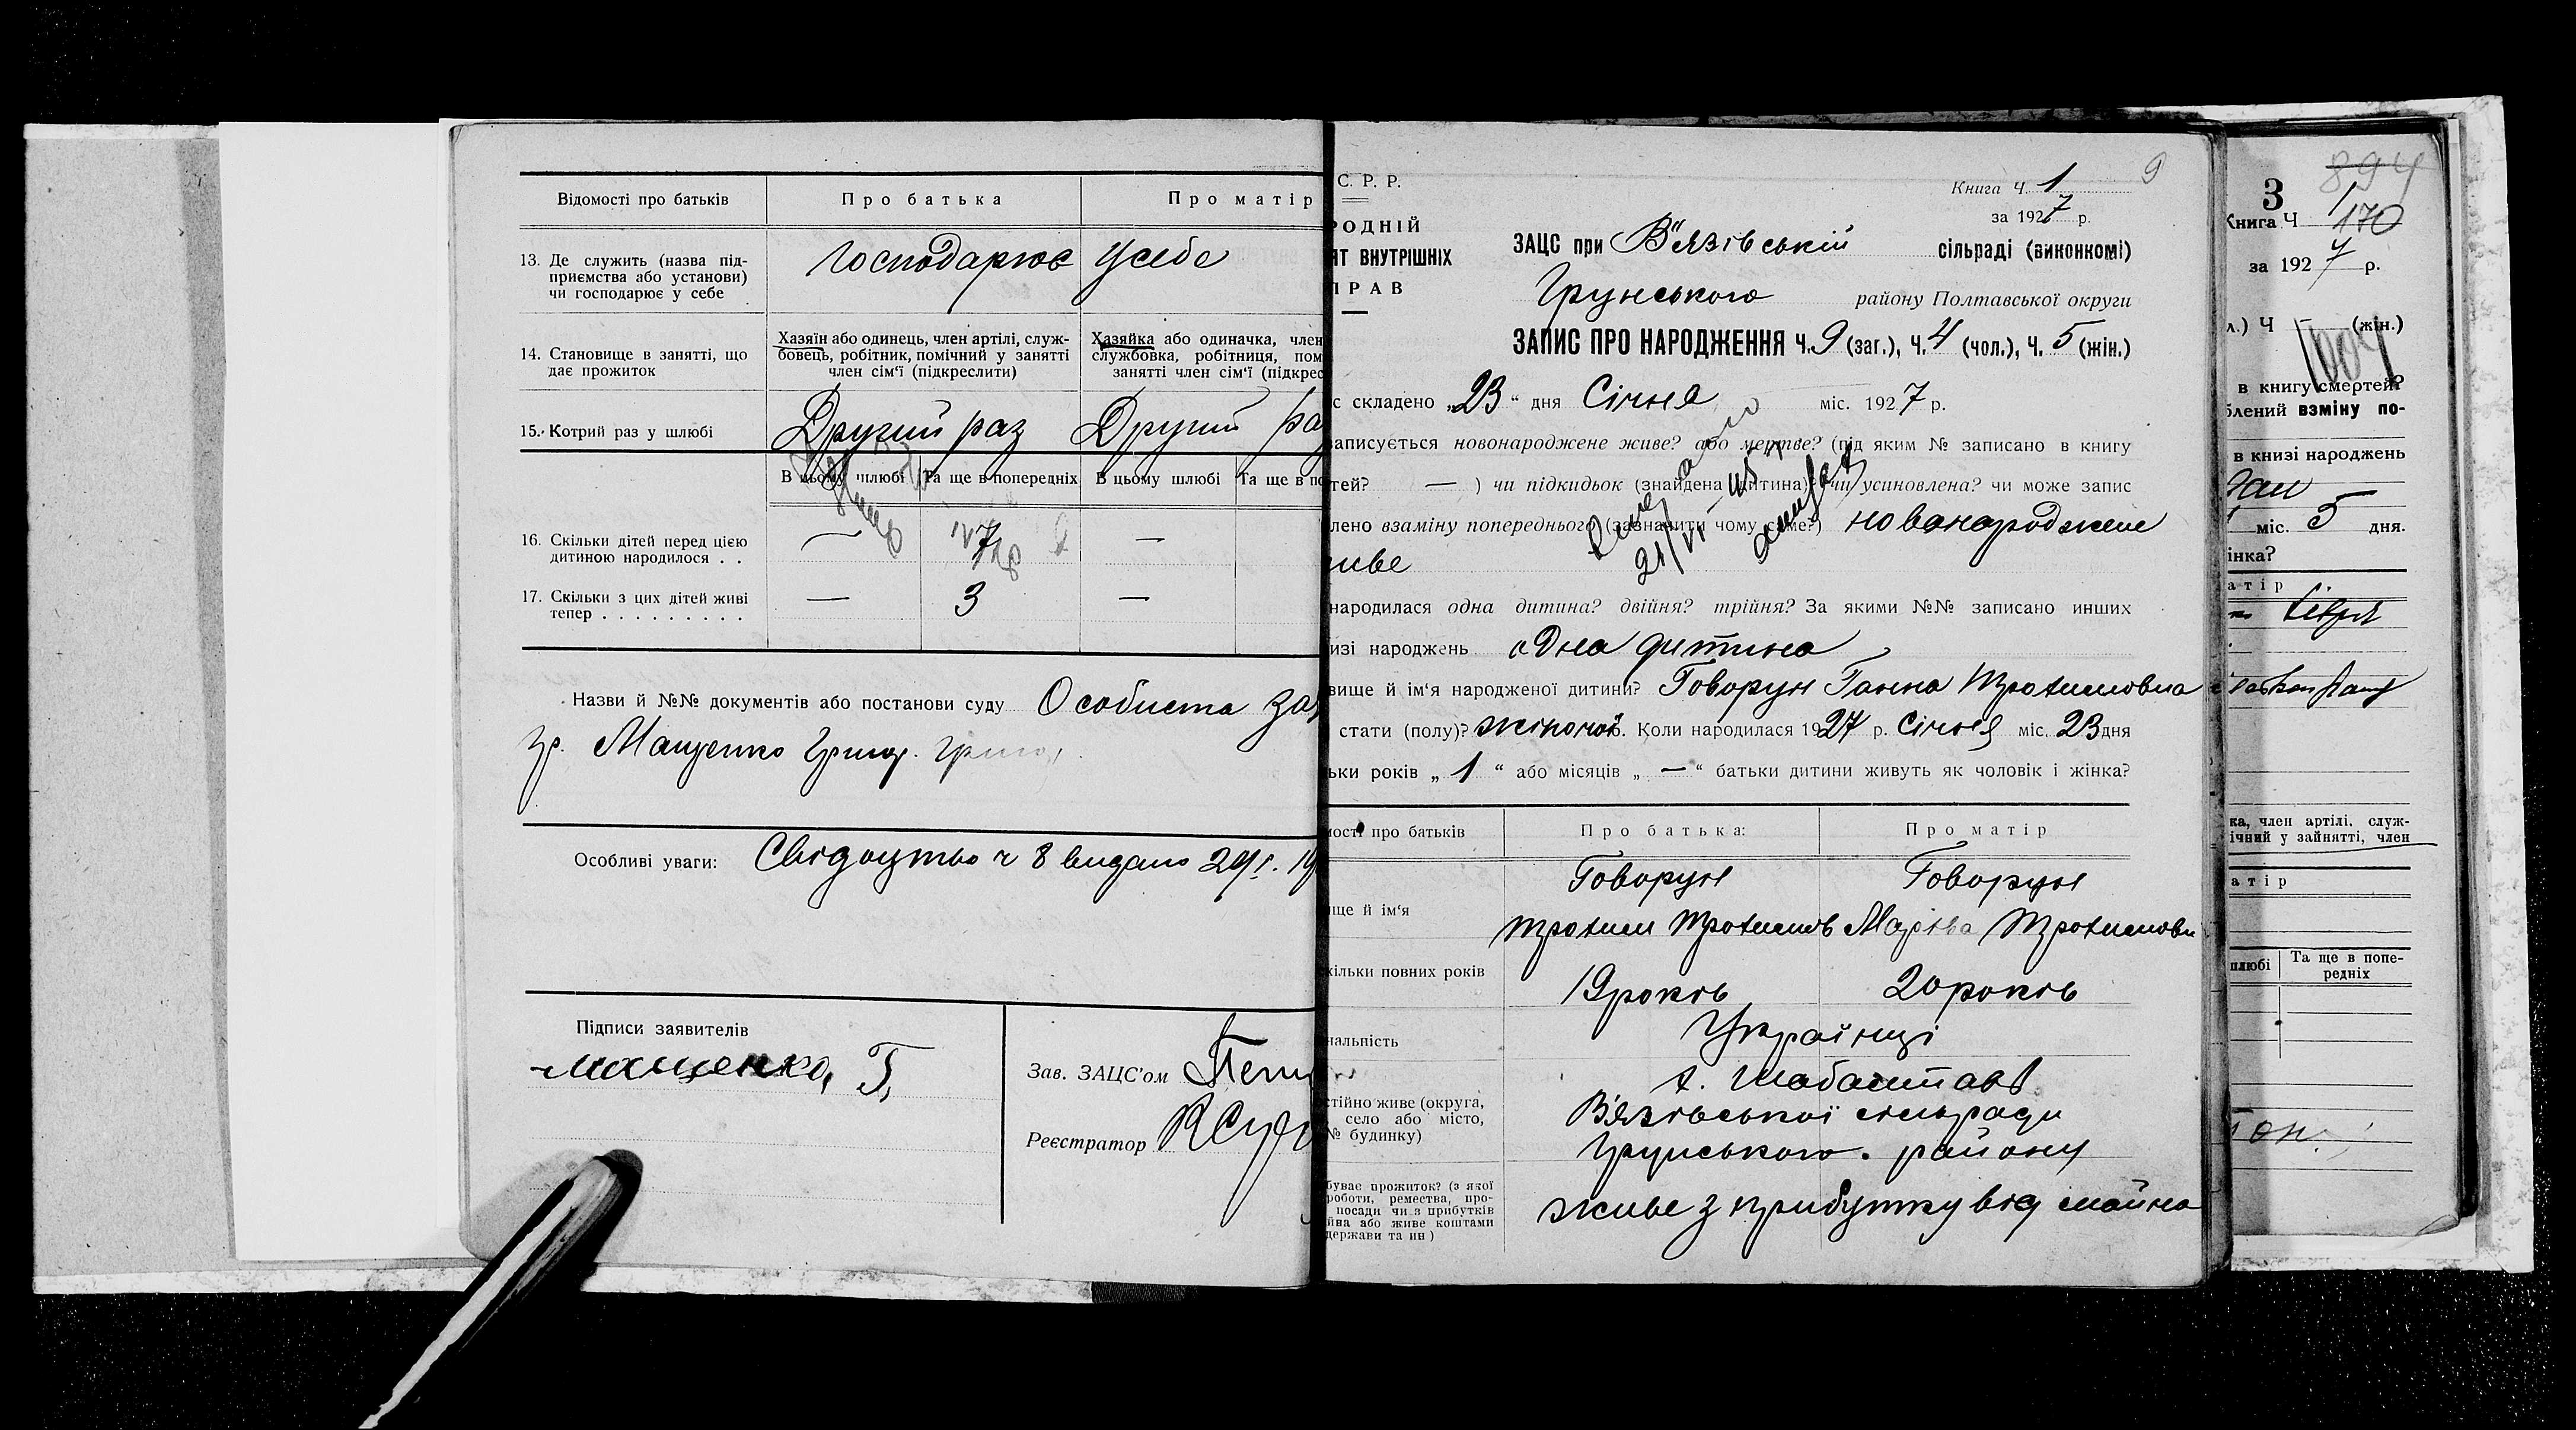 Відомості про батьків
Про батька
Про матір
13. Де служить (назва під-
приємства або установи)
чи господарює у себе
Господарює усебе
14. Становище в занятті, що
дає прожиток
Хазяїн або одинець, член артілі, служ-
бовець, робітник, помічний у занятті
член сім'ї (підкреслити)
Хазяйка або одиначка, член
службовка, робітниця, пом
занятті член сім'ї (підкрес
15. Котрий раз у шлюбі
Другий раз
Другий ра
В цьому шлюбі
Та ще в попередніх
В цьому шлюбі
Та ще в по
16. Скільки дітей перед цією
дитиною народилося . .
— 7 —
17. Скільки з цих дітей живі
тепер . . . . . . . . .
— 3 —
Назви й №№ документів або постанови суду Особиста зая
гр. Мащенко Григ.
Особливі уваги: Свідоцтво ч 8 видано 29/I. 19
Підписи заявителів
Мащенко, Г,
Зав. ЗАЦС'ом
Реєстратор
С. Р. Р.
РОДНІЙ
ЯТ ВНУТРІШНІХ
ПРАВ
9
Книга Ч. 1
за 1927 р.
ЗАЦС при В'язівській сільраді (виконкомі)
Грунського району Полтавської округи
ЗАПИС ПРО НАРОДЖЕННЯ Ч. 9 (заг.), Ч. 4 (чол.), Ч. 5 (жін.)
с складено „23“ дня Січня міс. 1927 р.
аписується новонароджене живе? або мертве? (під яким № записано в книгу
тей? — ) чи підкидьок (знайдена дитина)? чи усиновлена? чи може запис
лено взаміну попереднього (зазначити чому саме?) новонароджене
живе
народилася одна дитина? двійня? трійня? За якими №№ записано инших
изі народжень одна дитина
вище й ім'я народженої дитини? Говорун Ганна Трохимовна
стати (полу)? жіночої. Коли народилася 1927 р. Січня міс. 23 дня
ьки років „ 1 “ або місяців „ — “ батьки дитини живуть як чоловік і жінка?
мості про батьків
Про батька:
Про матір
ище й ім'я
Говорун
Трохим Трохимов
Говорун
Марfва Трохимовн
кільки повних років
19 років
20 років
нальність
Українці
стійно живе (округа,
село або місто,
№ будинку)
х. Шабалтаєв
В'язівської сільради
Грунського району
буває прожиток? (з якої
роботи, ремества, про-
посади чи з прибутків
йва або живе коштами
держави та ин)
живе з прибутку від майна
894
3
Книга Ч 1
170
за 1927 р.
л.) Ч — (жін.)
1004
в книгу смертей?
блений взміну по-
в книзі народжень
міс. 5 дня.
інка?
атір
ка, член артілі, служ-
ічний у зайнятті, член
атір
шлюбі
Та ще в попе-
редніх